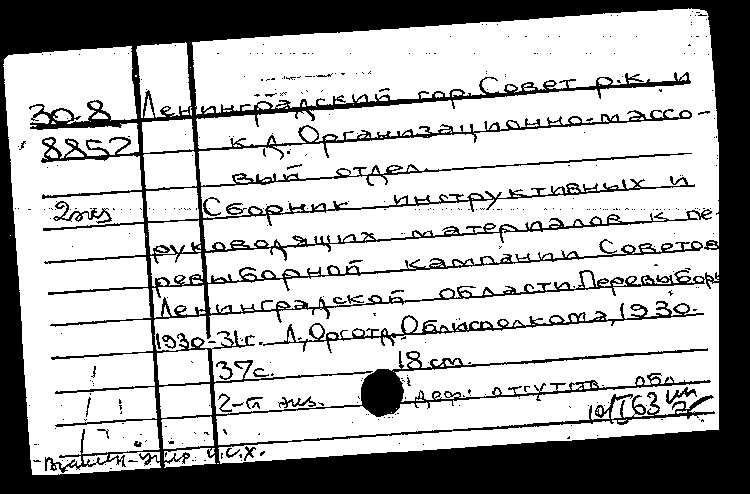 30-8 Ленинградский гор. Совет р.к. и
8852 к.д. Организационно-массо-
вый отдел.
2экз Сборник инструктивных и
руководящих материалов к пе-
ревыборной кампании Советов
Ленинградской области. Перевыборы
1930-31г. Л., Орготд. Облисполкома, 1930.
37с. 18 cm.
2-й экз. деф: отсутств. обл.
10/I 63